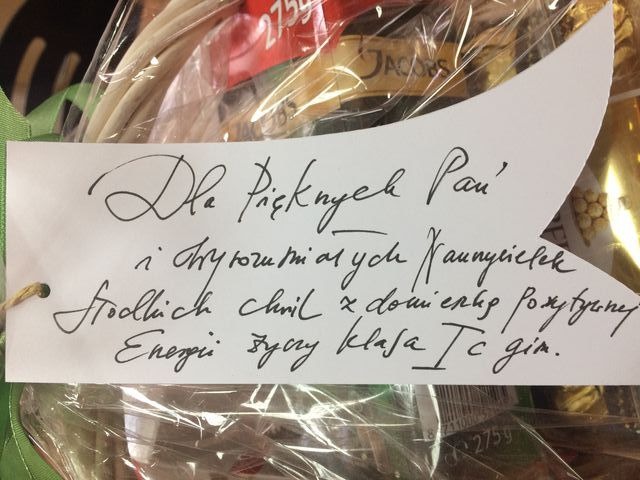 275g
JACOBS
JACOBS
Dla Pięknych Pań
i Wyrozumiałych Nauczycielek
Słodkich chwil z domieszką Pozytywnej
Energii życzy klasa I c gim.
275g